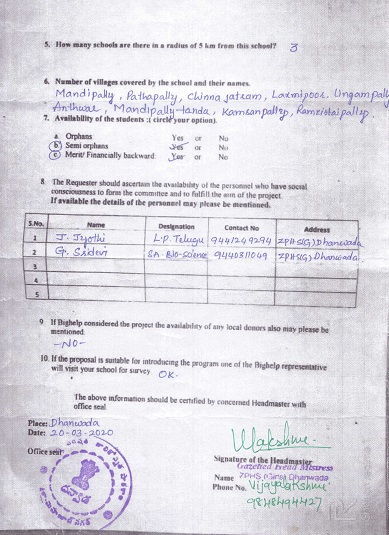 5. How many schools are there in a radius of 5 km from this school? 3
6. Number of villages covered by the school and their names.
Mandipally, Pathapally, Chinna Jatram, Laxmipoor, Ungampally
Anthwar, Mandipally-tanda, Kamsanpally, Ramkistaipally.
7. Availability of the students :( circle your option).
a. Orphans Yes or No
b) Semi orphans Yes or No
c) Merit/ Financially backward: Yes or No
8. The Requester should ascertain the availability of the personnel who have social
consciousness to form the committee and to fulfill the aim of the project.
If available the details of the personnel may please be mentioned.
S.No. Name Designation Contact No Address
1 J. Jyothi L.P. Telugu 9441249294 ZPHS(G) Dhanwada
2 G. Sridevi SA-Bio-Science 9440311049 ZPHS(G) Dhanwada
3
4
5
9 If Bighelp considered the project the availability of any local donors also may please be
mentioned.
-NO-
10. If the proposal is suitable for introducing the program one of the Bighelp representative
will visit your school for survey OK.
The above information should be certified by concerned Headmaster with
office seal
Place: Dhanwada
Date: 20-03-2020
Office seal
Signature of the Headmaster
Gazetted Head Mistress
Name ZPHS (Girls) Dhanwada
Phone No. Vijayalakshmi
9848494427